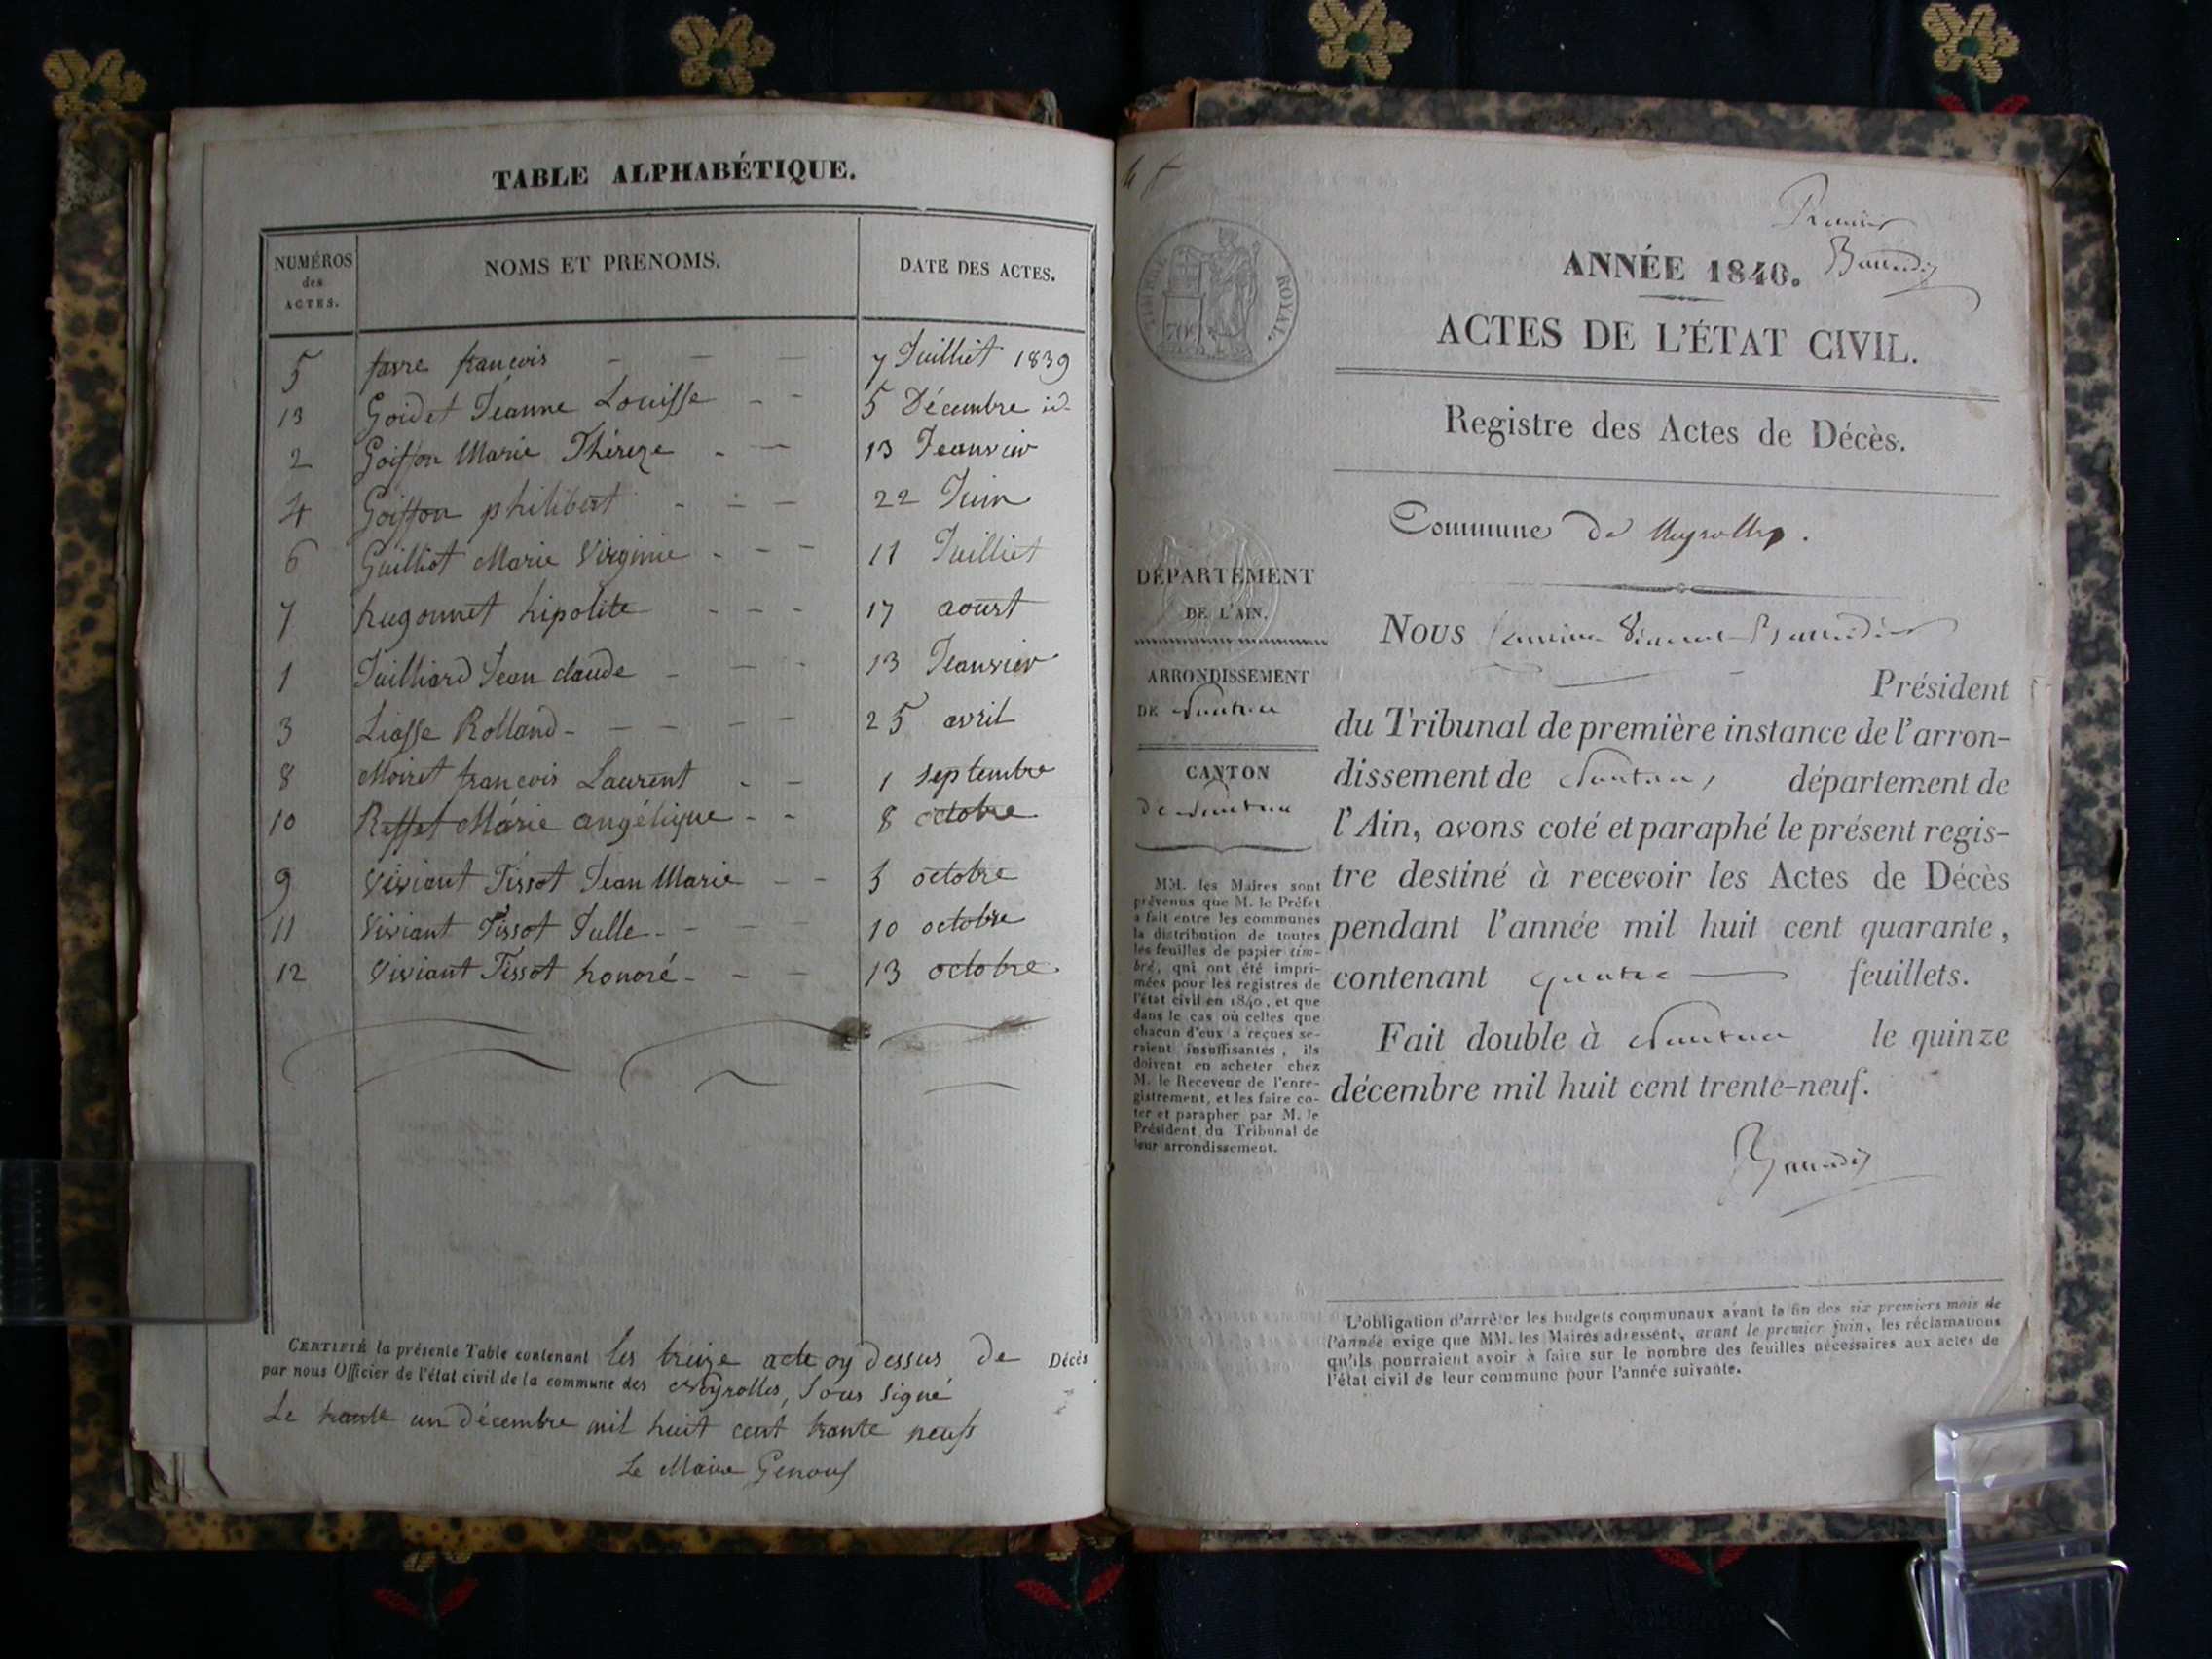 TABLE ALPHABÉTIQUE.
NUMÉROS des ACTES. NOMS ET PRENOMS. DATE DES ACTES.
5 favre françois 7 Juilliet 1839
13 Goidet Jeanne Louisse 5 Décembre id.
2 Goiffon Marie Théreze 13 Jeanvier
4 Goiffon philibert 22 Juin
6 Guilliot Marie Virginie 11 Juilliet
7 hugonnet hipolite 17 aoust
1 Juilliard Jean claude 13 Jeanvier
3 Liasse Rolland 25 avril
8 Moiret françois Laurent 1 septembre
10 Reffet Marie angélique 8 octobre
9 Viviant Tissot Jean Marie 3 octobre
11 Viviant Tissot Julle 10 octobre
12 Viviant Tissot honoré 13 octobre
CERTIFIÉ la présente Table contenant les treize acte cy dessus de Décès
par nous Officier de l'état civil de la commune des Neyrolles, Sous signé
Le trante un Décembre mil huit cent trante neuf
Le Maire Genouf
Premier
Baundin
ANNÉE 1840.
ACTES DE L'ÉTAT CIVIL.
TIMBRE ROYAL.
Registre des Actes de Décès.
Commune de Neyrolles.
DÉPARTEMENT
DE L'AIN.
ARRONDISSEMENT
DE Nantua
CANTON
de Nantua
MM. les Maires sont
prévenus que M. le Préfet
a fait entre les communes
la distribution de toutes
les feuilles de papier tim-
bré, qui ont été impri-
mées pour les registres de
l'état civil en 1840, et que
dans le cas où celles que
chacun d'eux a reçues se-
raient insuffisantes, ils
doivent en acheter chez
M. le Receveur de l'enre-
gistrement, et les faire co-
ter et parapher par M. le
Président du Tribunal de
leur arrondissement.
Nous
Président
du Tribunal de première instance de l'arron-
dissement de Nantua, département de
l'Ain, avons coté et paraphé le présent regis-
tre destiné à recevoir les Actes de Décès
pendant l'année mil huit cent quarante,
contenant quatre feuillets.
Fait double à Nantua le quinze
décembre mil huit cent trente-neuf.
L'obligation d'arrêter les budgets communaux avant la fin des six premiers mois de
l'année exige que MM. les Maires adressent, avant le premier juin, les réclamations
qu'ils pourraient avoir à faire sur le nombre des feuilles nécessaires aux actes de
l'état civil de leur commune pour l'année suivante.